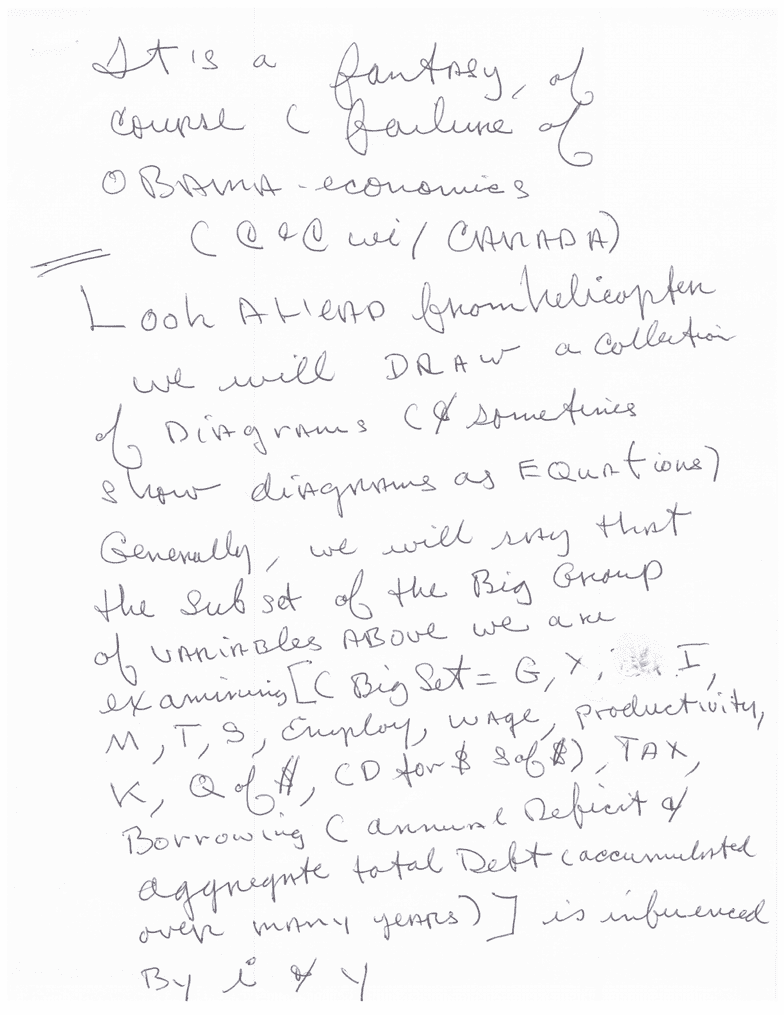 It is a fantasy, of
course ( failure of
OBAMA-economics
( C & C wi/ CANADA)
Look AHEAD from helicopter
we will DRAW a collection
of Diagrams (& sometimes
show diagrams as EQUATions)
Generally, we will say that
the subset of the Big Group
of VARIABLES ABOVE we are
examining [( Big Set = G, X, I,
M, T, S, Employ, wage, productivity,
K, Q of $, CD for $ S of $), TAX,
Borrowing ( annual Deficit &
aggregate total Debt (accumulated
over many years)] is influenced
By i & Y